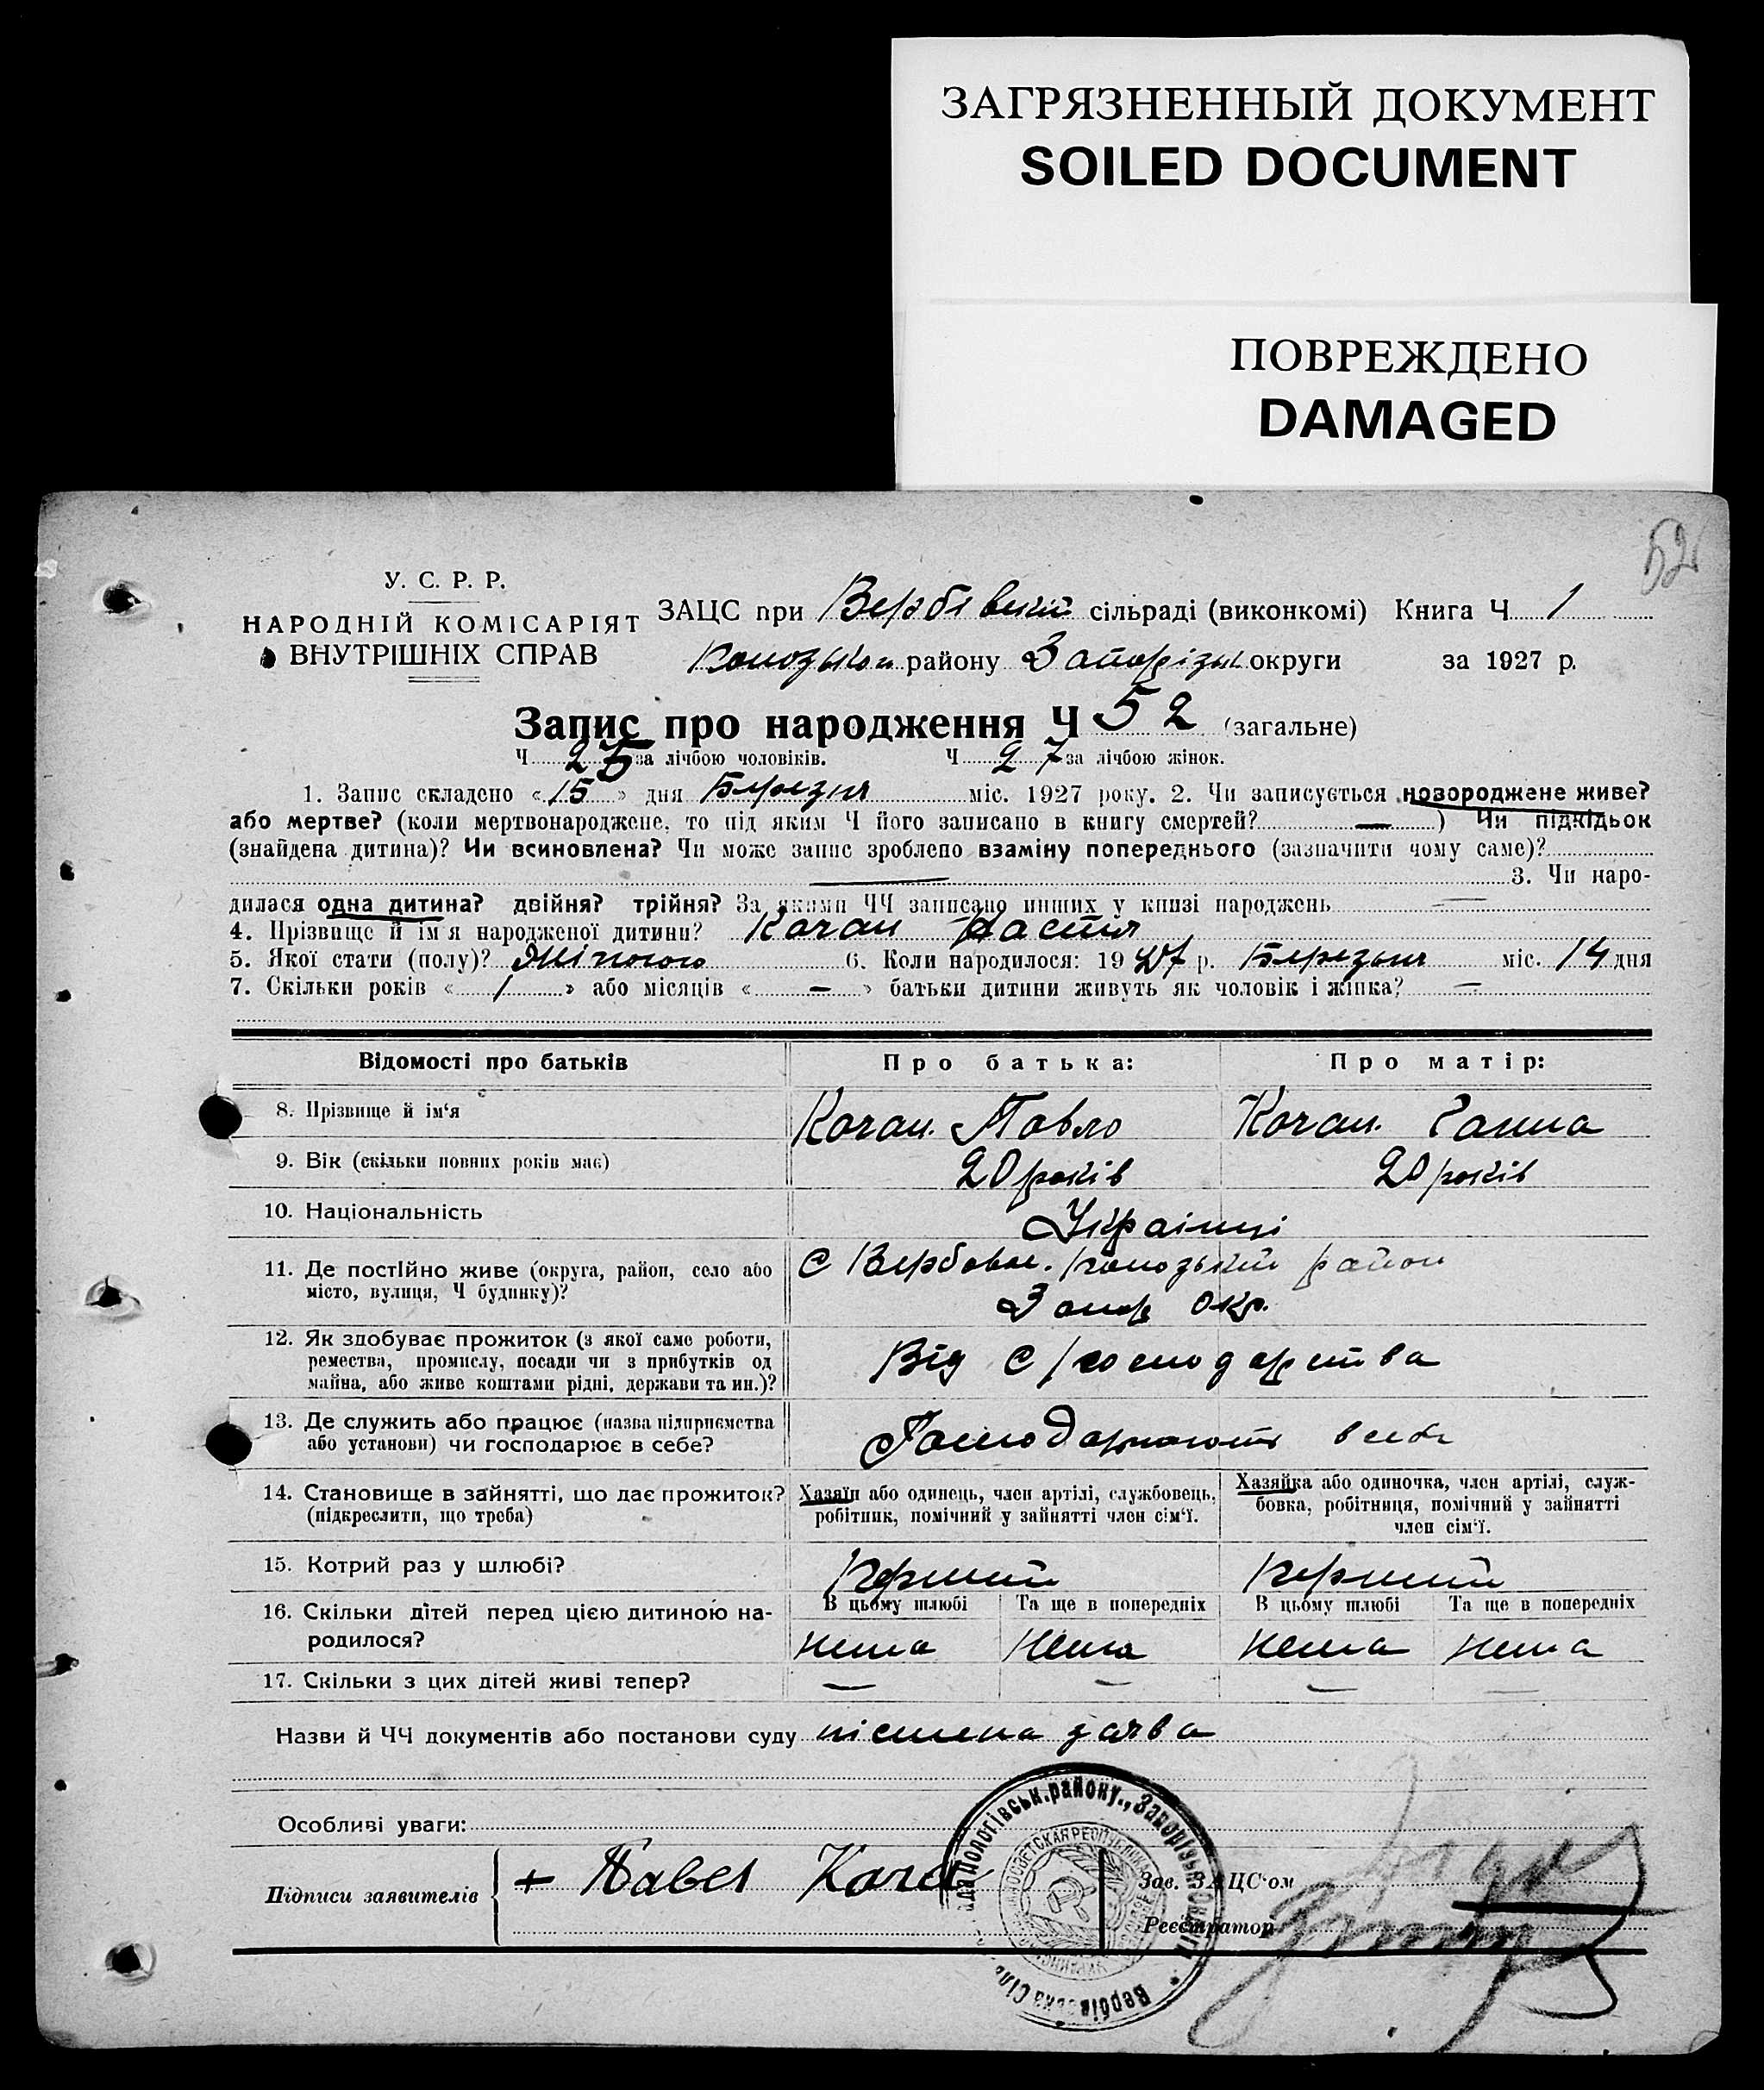 ЗАГРЯЗНЕННЫЙ ДОКУМЕНТ
SOILED DOCUMENT
ПОВРЕЖДЕНО
DAMAGED
52
У. С. Р. Р.
НАРОДНІЙ КОМІСАРІЯТ
ВНУТРІШНІХ СПРАВ
ЗАЦС при Вербівській сільраді (виконкомі) Книга Ч 1
району Запорізьк округи за 1927 р.
Запис про народження Ч 52 (загальне)
Ч 25 за лічбою чоловіків. Ч 27 за лічбою жінок.
1. Запис складено «15» дня Березня міс. 1927 року. 2. Чи записується новороджене живе?
або мертве? (коли мертвонароджене, то під яким Ч його записано в книгу смертей? — ) Чи підкідьок
(знайдена дитина)? Чи всиновлена? Чи може запис зроблено взаміну попереднього (зазначити чому саме)?
— 3. Чи наро-
дилася одна дитина? двійня? трійня? За якими ЧЧ записано инших у книзі народжень —
4. Прізвище й ім'я народженої дитини? Кочан Настя
5. Якої стати (полу)? Жіночого 6. Коли народилося: 1927 р. Березня міс. 14 дня
7. Скільки років «1» або місяців « — » батьки дитини живуть як чоловік і жінка? —
Відомості про батьків Про батька: Про матір:
8. Прізвище й ім'я Кочан Павло Кочан Ганна
9. Вік (скільки повних років має) 20 років 20 років
10. Національність Українці
11. Де постійно живе (округа, район, село або
місто, вулиця, Ч будинку)?
С Вербове район
Запор окр.
12. Як здобуває прожиток (з якої саме роботи,
ремества, промислу, посади чи з прибутків од
майна, або живе коштами рідні, держави та ин.)?
Від С/господарства
13. Де служить або працює (назва підприємства
або установи) чи господарює в себе?
Господарюють в себе
14. Становище в зайнятті, що дає прожиток?
(підкреслити, що треба)
Хазяїн або одинець, член артілі, службовець,
робітник, помічний у зайнятті член сім'ї.
Хазяйка або одиночка, член артілі, служ-
бовка, робітниця, помічний у зайнятті
член сім'ї.
15. Котрий раз у шлюбі? Перший Перший
16. Скільки дітей перед цією дитиною на-
родилося?
В цьому шлюбі Та ще в попередніх В цьому шлюбі Та ще в попередніх
нема нема нема нема
17. Скільки з цих дітей живі тепер? — — — —
Назви й ЧЧ документів або постанови суду пісмена заява
Особливі уваги:
Підписи заявителів +
Зав. ЗАЦС'ом
Реєстратор